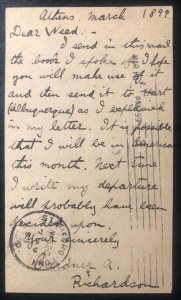 Athens, March 1899
Dear Weed:-
I send in this mail
the book I spoke of I hope
you will make use of it
and then send it to Hart
(Albuquerque) as I explained
in my letter. It is possible
that I will be in America
this month. Next time
I write my departure
will probably have been
decided upon.
Yours sincerely
Gardner A.
Richardson